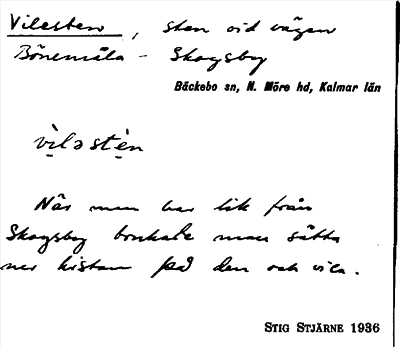 Vilesten, sten vid vägen
Bönemåla - Skogsby
Bäckebo sn, N. Möre hd, Kalmar län
vìləstèn
När man bar lik från
Skogsby brukade man sätta
ner kistan på den och vila.
STIG STJÄRNE 1936